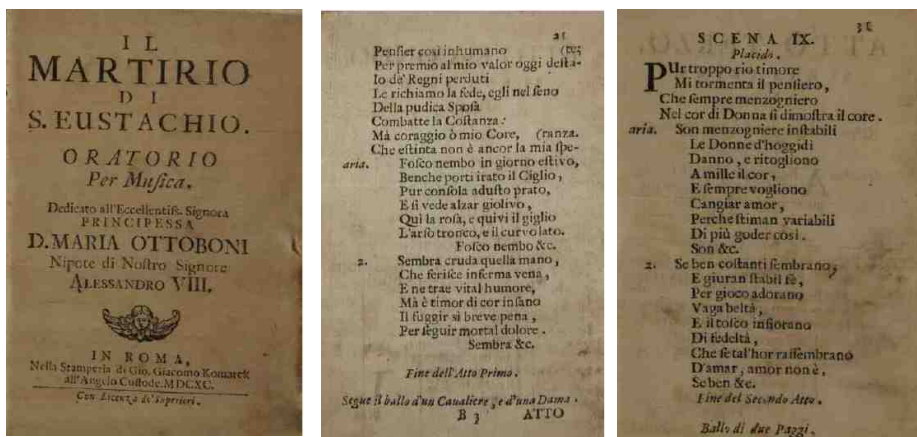 IL
MARTIRIO
DI
S. EUSTACHIO.
ORATORIO
Per Musica.
Dedicato all'Eccellentiss. Signora
PRINCIPESSA
D. MARIA OTTOBONI
Nipote di Nostro Signore
ALESSANDRO VIII.
IN ROMA,
Nella Stamperia di Gio. Giacomo Komarek
all'Angelo Custode. MDCXC.
Con Licenza de' Superiori.
21
Pensier così inhumano (te;
Per premio al mio valor oggi desta-
Io de' Regni perduti
Le richiamo la fede, egli nel seno
Della pudica Sposa
Combatte la Costanza:
Mà coraggio ò mio Core, (ranza.
Che estinta non è ancor la mia spe-
aria. Fosco nembo in giorno estivo,
Benche porti irato il Ciglio,
Pur consola adusto prato,
E si vede alzar giolivo,
Qui la rosa, e quivi il giglio
L'arso tronco, e il curvo lato.
Fosco nembo &c.
2. Sembra cruda quella mano,
Che ferisce inferma vena,
E ne trae vital humore,
Mà è timor di cor insano
Il fuggir si breve pena,
Per seguir mortal dolore.
Sembra &c.
Fine dell'Atto Primo.
Segue il ballo d'un Cavaliere, e d'una Dama.
B 3 ATTO
31
SCENA IX.
Placido.
PUr troppo rio timore
Mi tormenta il pensiero,
Che sempre menzogniero
Nel cor di Donna si dimostra il core.
aria. Son menzogniere instabili
Le Donne d'hoggidi
Danno, e ritogliono
A mille il cor,
E sempre vogliono
Cangiar amor,
Perche stiman variabili
Di più goder così.
Son &c.
2. Se ben costanti sembrano,
E giuran stabil fè,
Per gioco adorano
Vaga beltà,
E il tosco infiorano
Di fedeltà,
Che se tal'hor rassembrano
D'amar, amor non è,
Se ben &c.
Fine del Secondo Atto.
Ballo di due Paggi.